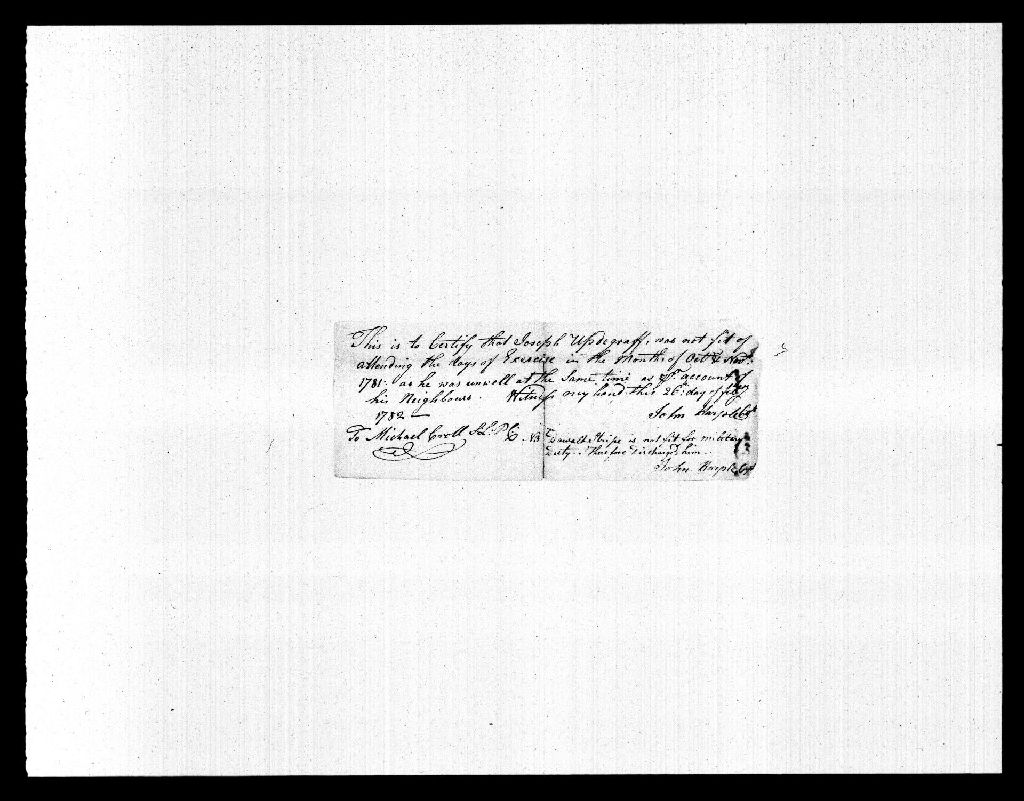 This is to Certify that Joseph Updegraff, was not fit of
attending the days of Exercise in the Month of Octr & Novr.
1781. as he was unwell at the Same time as pr. account of
his Neighbours. Witness my hand this 26th. day of Feby
1782 —
John
To Michael Croll S.L. N3
is not fit for military
Duty. therefore discharged him.
John